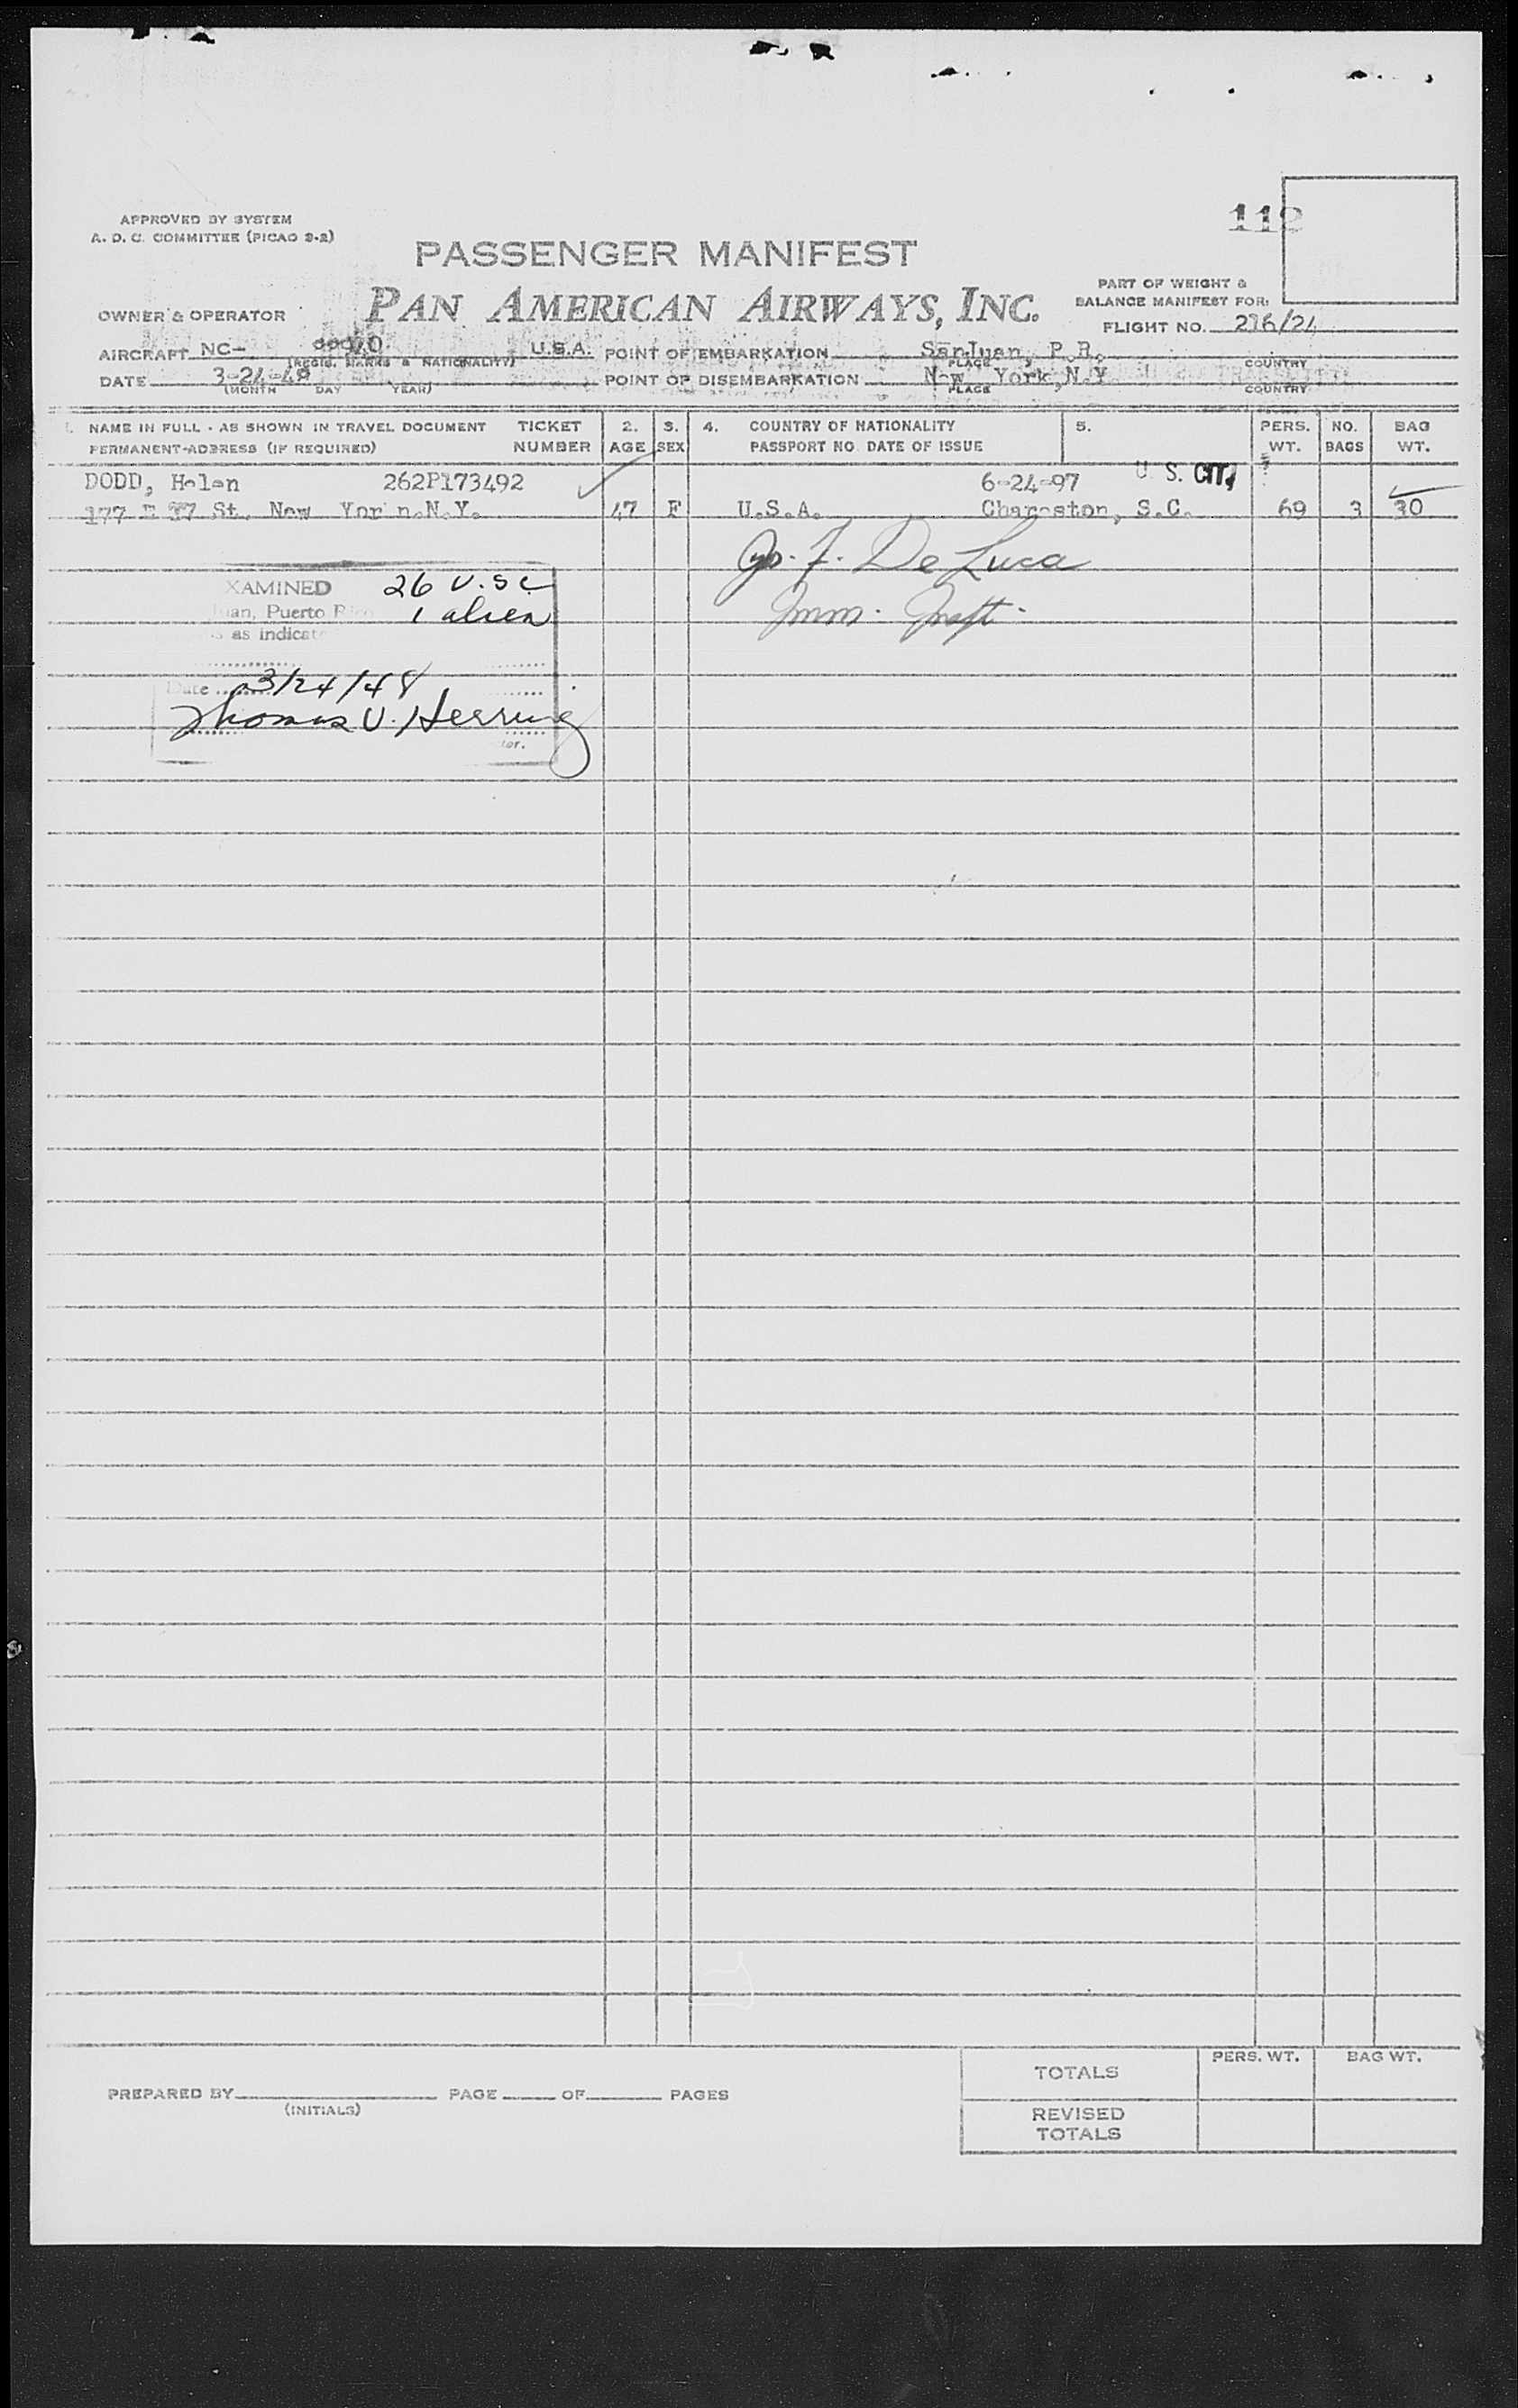 112
APPROVED BY SYSTEM
A. D. C. COMMITTEE (PICAO 9-2)
PASSENGER MANIFEST
PART OF WEIGHT &
BALANCE MANIFEST FOR:
OWNER & OPERATOR PAN AMERICAN AIRWAYS, INC.
FLIGHT NO. 216/24
AIRCRAFT NC- U.S.A. POINT OF EMBARKATION San Juan, P.R.
(REGIS. MARKS & NATIONALITY) PLACE COUNTRY
DATE 3-24-48 POINT OF DISEMBARKATION New York, N.Y.
(MONTH DAY YEAR) PLACE COUNTRY
1. NAME IN FULL - AS SHOWN IN TRAVEL DOCUMENT TICKET 2. 3. 4. COUNTRY OF NATIONALITY 5. PERS. NO. BAG
PERMANENT-ADDRESS (IF REQUIRED) NUMBER AGE SEX PASSPORT NO. DATE OF ISSUE WT. BAGS WT.
DODD, Helen 262P173492 6-24-97 U. S. CIT.
177 E 77 St. New Yor n.N.Y. 47 F U.S.A. Chareston, S.C. 69 3 30
Jo. F. De Luca
XAMINED 26 U.S.C.
uan, Puerto Rico 1 alien
Imm. Inspt.
s as indicat
Date 3/24/48
Thomas V. Herring
tor.
PREPARED BY PAGE OF PAGES
(INITIALS)
PERS. WT. BAG WT.
TOTALS
REVISED
TOTALS